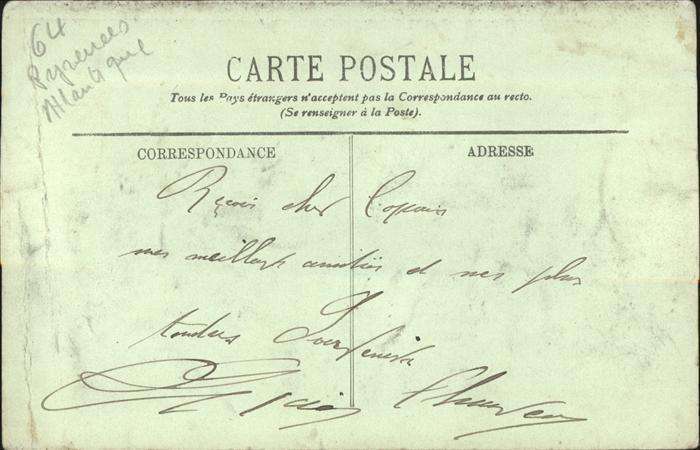 64
Pyrenees
Atlantique
CARTE POSTALE
Tous les Pays étrangers n'acceptent pas la Correspondance au recto.
(Se renseigner à la Poste).
CORRESPONDANCE
ADRESSE
Reçois cher Copain
mes meilleurs amitiés et mes plus
tendres Souvenirs